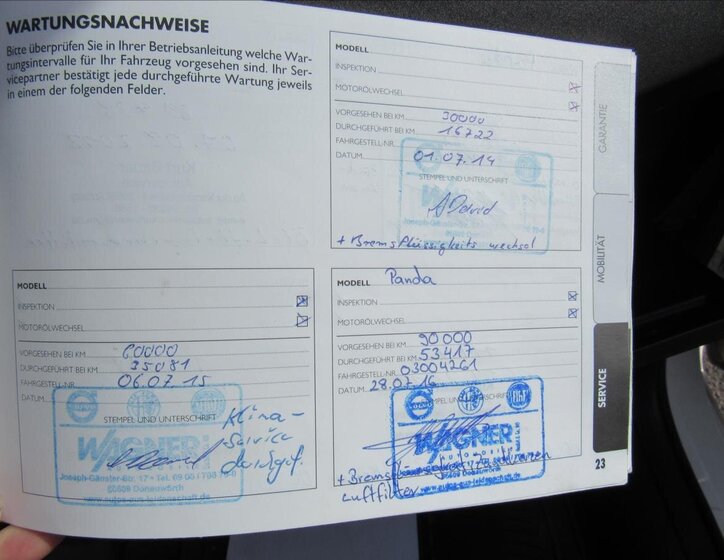 WARTUNGSNACHWEISE
Bitte überprüfen Sie in Ihrer Betriebsanleitung welche War-
tungsintervalle für Ihr Fahrzeug vorgesehen sind. Ihr Ser-
vicepartner bestätigt jede durchgeführte Wartung jeweils
in einem der folgenden Felder.
MODELL
INSPEKTION
MOTORÖLWECHSEL
VORGESEHEN BEI KM 30000
DURCHGEFÜHRT BEI KM 16722
FAHRGESTELL-NR.
DATUM 01.07.14
STEMPEL UND UNTERSCHRIFT
+ Bremsflüssigkeits wechsel
MODELL
INSPEKTION
MOTORÖLWECHSEL
VORGESEHEN BEI KM 60000
DURCHGEFÜHRT BEI KM 35081
FAHRGESTELL-NR. 06.07.15
DATUM
STEMPEL UND UNTERSCHRIFT
Klima-
Service
durchgef.
WAGNER
Joseph-Gänsler-Str. 17 • Tel. 09 06 / 706 70-0
86609 Donauwörth
www.autos-aus-leidenschaft.de
MODELL Panda
INSPEKTION
MOTORÖLWECHSEL
VORGESEHEN BEI KM 90000
DURCHGEFÜHRT BEI KM 53417
FAHRGESTELL-NR. 03004261
DATUM 28.07.16
STEMPEL UND UNTERSCHRIFT
WAGNER
Luftfilter
GARANTIE
MOBILITÄT
SERVICE
23